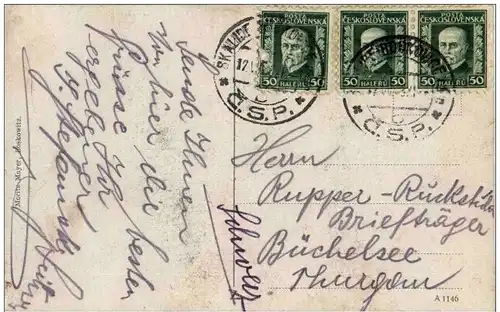 POSTA
ČESKOSLOVENSKÁ
50 HALÉŘŮ 50
POSTA
ČESKOSLOVENSKÁ
50 HALÉŘŮ 50
POSTA
ČESKOSLOVENSKÁ
50 HALÉŘŮ 50
Č.S.P.
Č.S.P.
Sende Ihnen
von hier die besten
Grüsse Ihr
ergebener
Herrn
Rupper-Ruckstuhl
Briefträger
Büchelsee
Thurgau
Schweiz
Moritz Mayer, Boskowitz.
A 1146